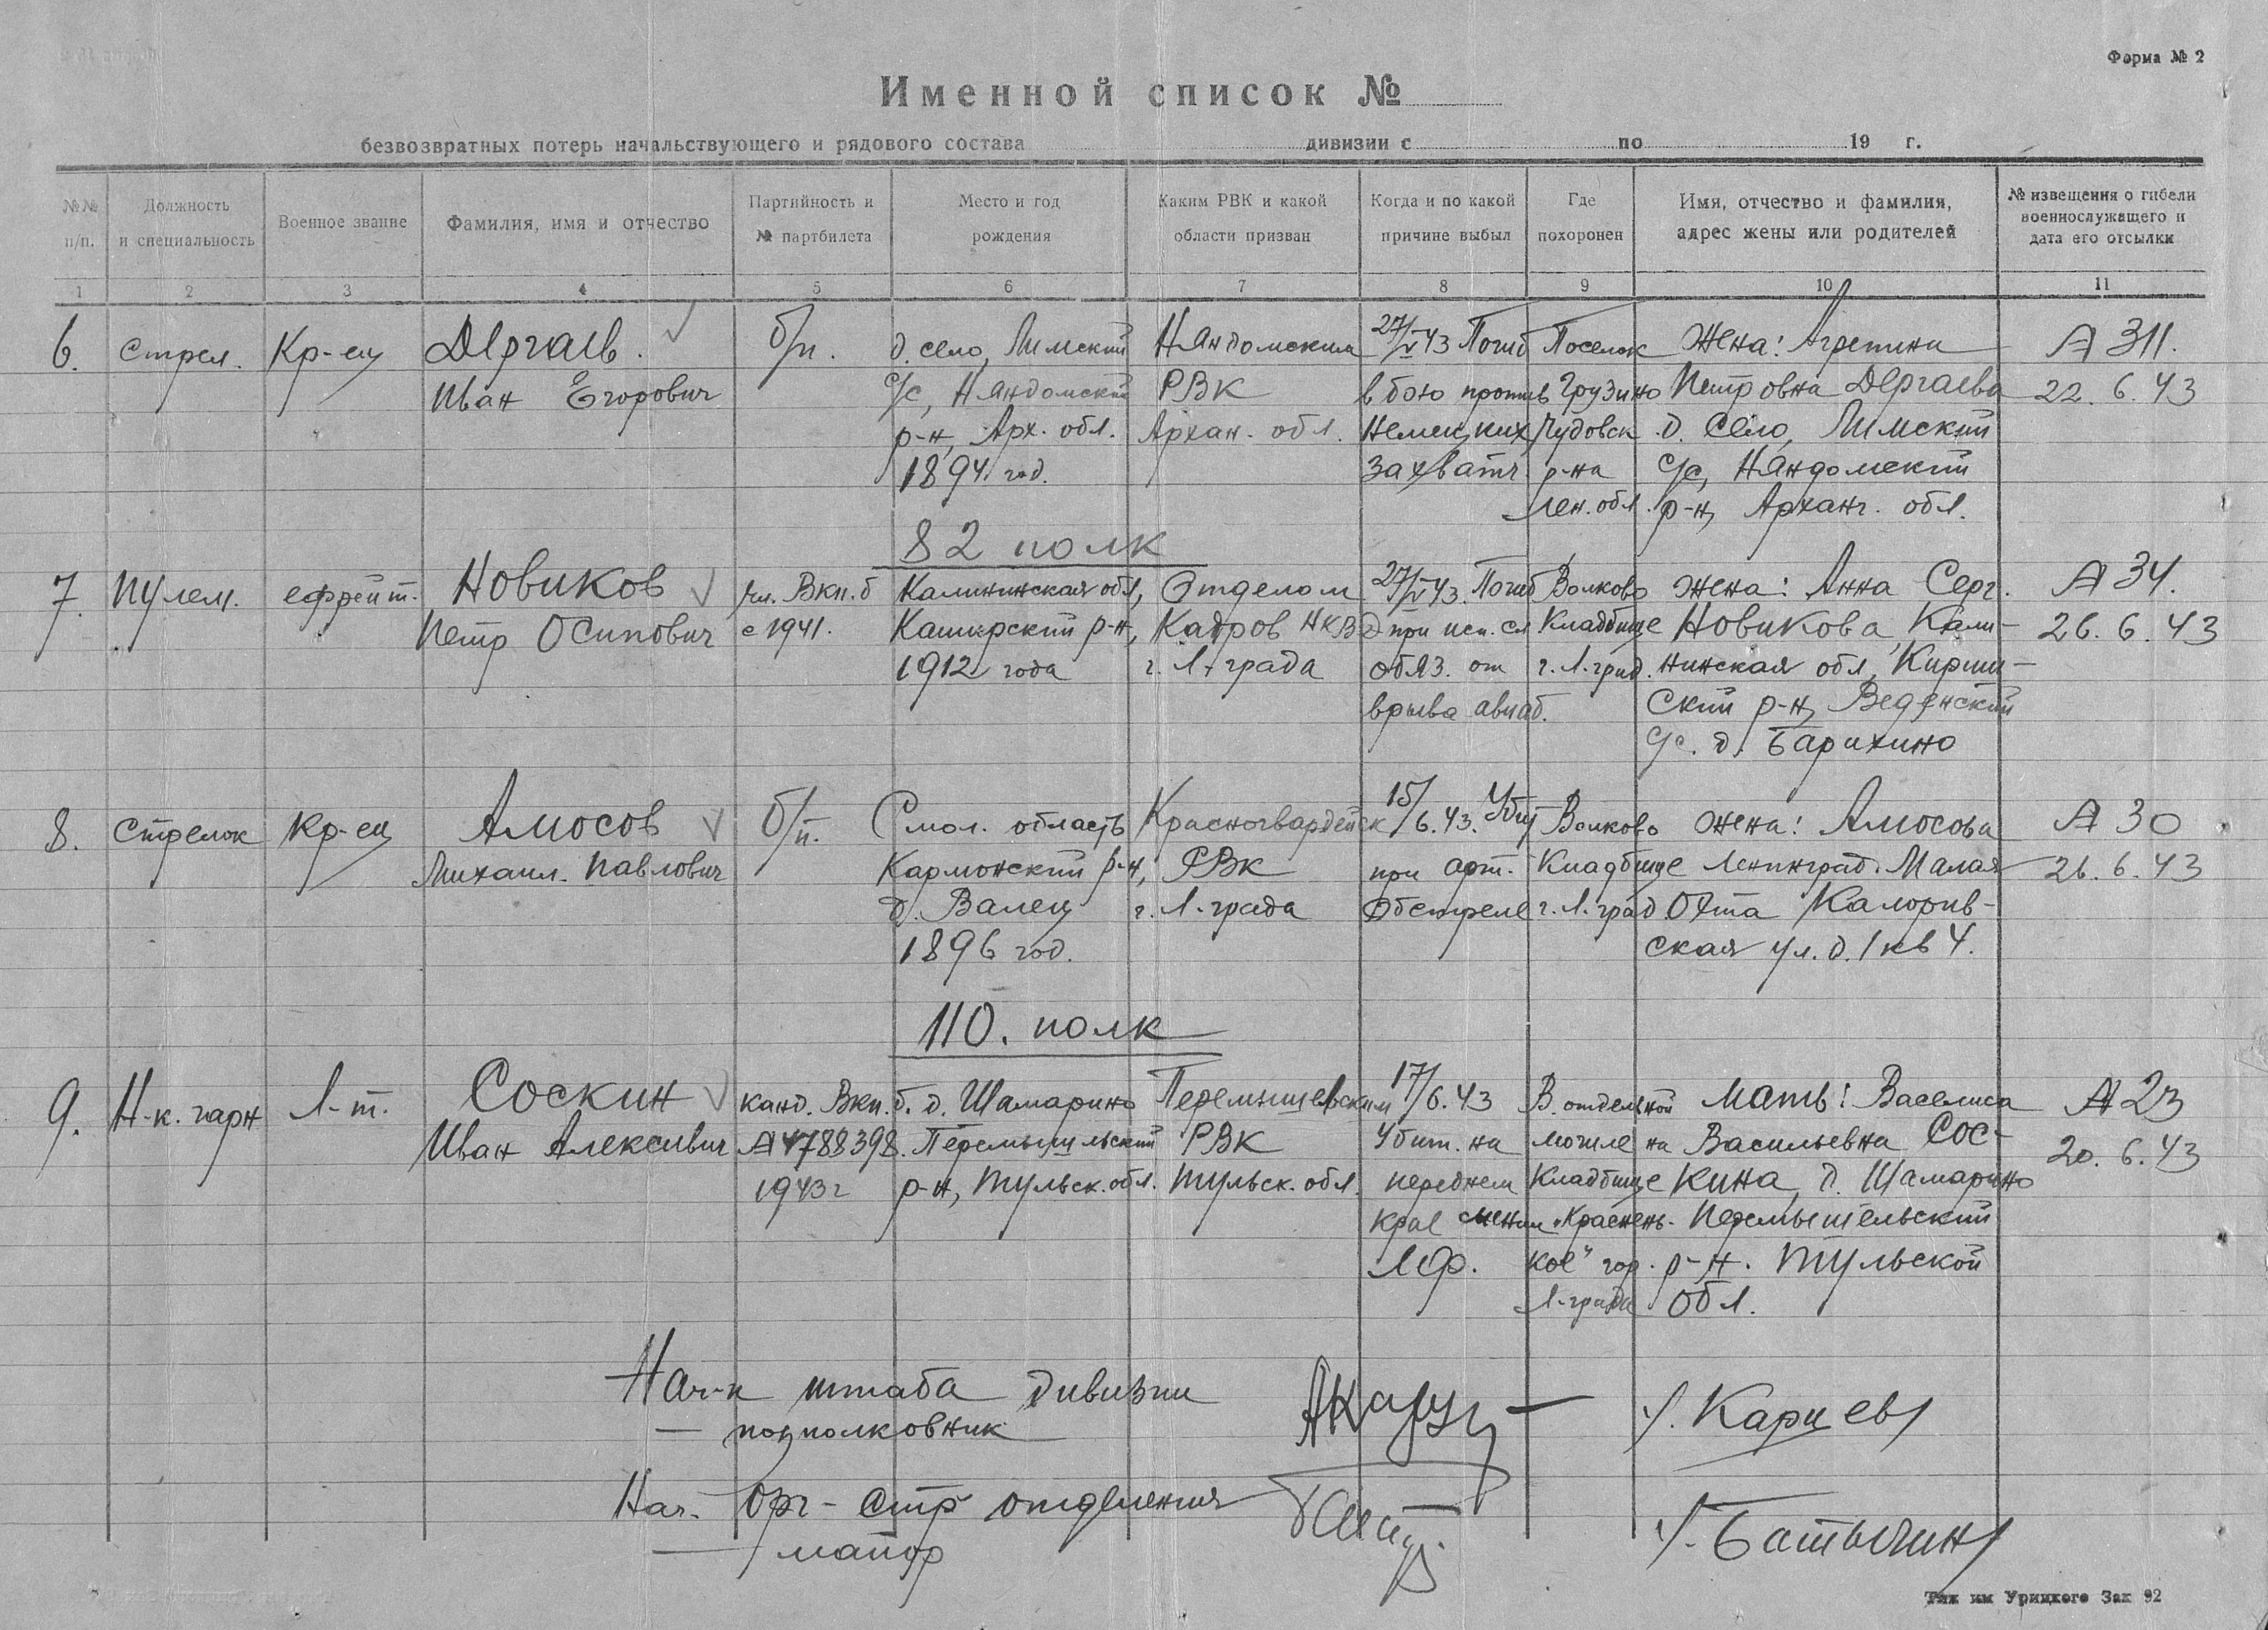 Форма № 2
Именной список №
безвозвратных потерь начальствующего и рядового состава дивизии с по 19 г.
№№ п/п.
Должность и специальность
Военное звание
Фамилия, имя и отчество
Партийность и № партбилета
Место и год рождения
Каким РВК и какой области призван
Когда и по какой причине выбыл
Где похоронен
Имя, отчество и фамилия, адрес жены или родителей
№ извещения о гибели военнослужащего и дата его отсылки
1 2 3 4 5 6 7 8 9 10 11
6. Стрел. Кр-ец Дергаев. б/п. д. село, Лимский Няндомским 27/V 43 Погиб Поселок Жена: Агрепина А 311.
Иван Егорович с/с, Няндомский РВК в бою против Грузино Петровна Дергаева 22. 6. 43
р-н, Арх. обл. Архан. обл. немецких Чудовск. д. Село, Лимский
1894 год. захватч р-на с/с, Няндомский
Лен. обл. р-н, Арханг. обл.
82 полк
7. Пулем. ефрейт. Новиков чл. Вкп.б Калининская обл, Отделом 27/V 43. Погиб Волково жена: Анна Серг. А 34.
Петр Осипович с 1941. Каширский р-н, Кадров НКВД при исп. сл Кладбище Новикова, Кали- 26. 6. 43
1912 года г. Л-града обяз. от г. Л.град. нинская обл,
врыва авиаб. ский р-н, Веденский
с/с. д. Барихино
8. Стрелок Кр-ец Амосов б/п. Смол. область Красногвардейск 15/6.43. Убит Волково жена: Амосова А 30
Михаил Павлович Кармонский р-н, РВК при арт. Кладбище Ленинград. Малая 26. 6. 43
д. Валец г. Л-града Обстреле г. Л.град Охта
1896 год. ская ул. д. 1 кв 4.
110. полк
9. Н-к. гарн Л-т. Соскин канд. Вкп.б. д. Шамарино Перемышевским 17/6.43 В отдельной Мать: Васелиса А 23
Иван Алексеивич А 4788398. Перемышльский РВК Убит. на могиле на Васильевна Сос- 20. 6. 43
1943 г р-н, Тульск. обл. Тульск. обл. переднем Кладбище кина, д. Шамарино
крае „Краснень- Перемышельский
ЛФ. кое" гор. р-н. Тульской
Л-града обл.
Нач-к штаба дивизии
— подполковник /. Карцев/
Нач. Орг-Стр отделения
— майор /. Батычин/
Тип им Урицкого Зак 92